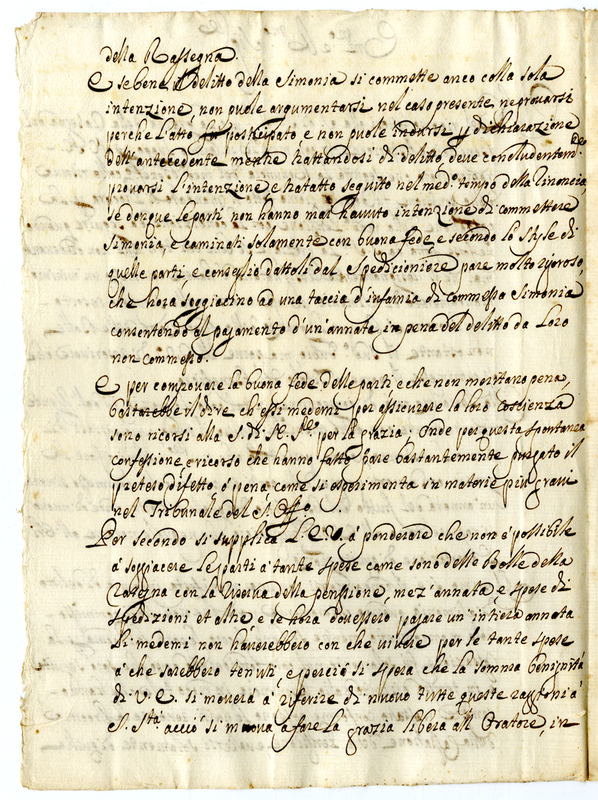 della Rassegna.
E se bene il delitto della Simonia si commette anco colla sola
intenzione, non puole argumentarsi nel caso presente, ne provarsi
perche l'atto fù posticipato e non puole indursi p dichiarazione
dell'antecedente mentre trattandosi di delitto, deve concludentem.te
provarsi l'intenzione, e tratatto seguito nel med.o tempo della rinoncia
se donque le parti non hanno mai havuto intenzione di commettere
simonia, e caminati solamente con buona fede, e secondo lo style di
quelle parti, e conseglio dattoli dal Spedicioniere pare molto rigoroso,
che hora soggiacino ad una taccia d'infamia di commessa Simonia
consentendo al pagamento d'un'annata in pena del delitto da loro
non commesso.
E per comprovare la buona fede delle parti, e che non meritano pena,
bastarebbe il dire, ch'essi medemi per assicurare la loro coscienza
sono ricorsi alla S. di N. S.re per la grazia; Onde per questa spontanea
confessione, e ricorso che hanno fatto pare bastantemente purgato il
preteso difetto, ò pena, come si esperimenta in materie più gravi
nel Tribunale del S. Offo.
Per secondo si supplica l'E.V. à ponderare che non è possibile
à soggiacere le parti à tante spese come sono delle Bolle della
rasegna con la riserva della pensione, mez'annata, e spese di
spedizioni et altre e se hora dovessero pagare un'intiera annata
li medemi non haverebbero con che vivere per le tante spese
à che sarebbero tenuti, e perciò si spera che la somma benignità
di V.E. si moverà à riferire di nuovo tutte queste raggioni à
S. S.tà acciò si muova a fare la grazia libera all'Oratore, in